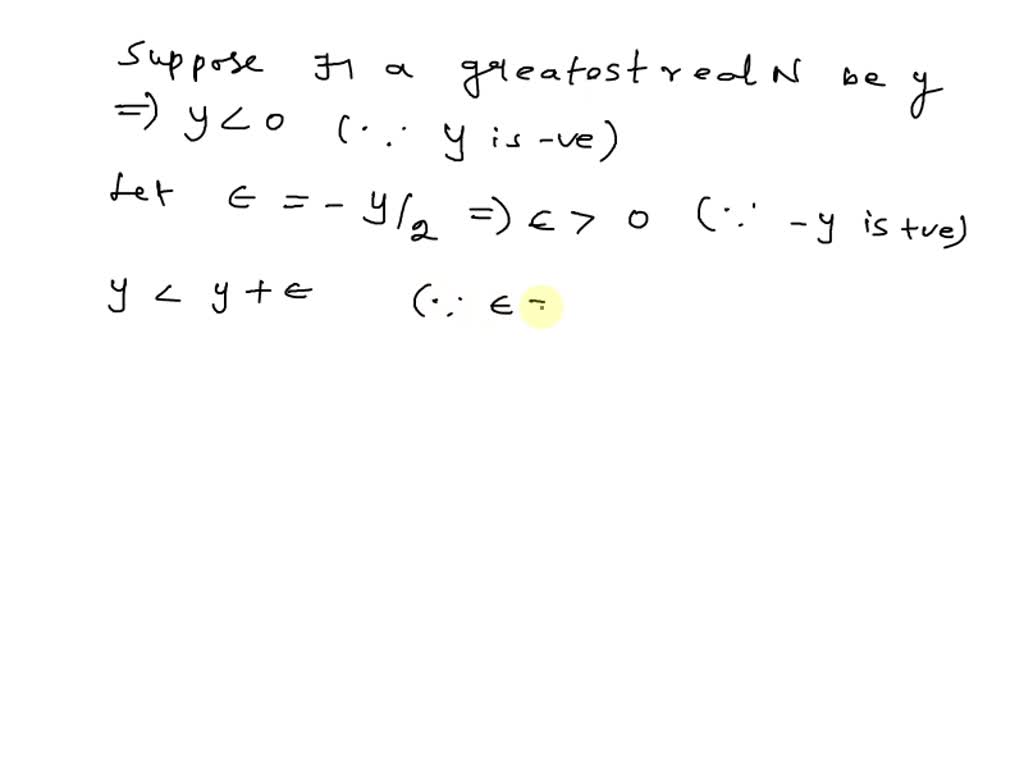 Suppose ∃ a greatost real N be y
=) y < 0 (∵ y is -ve)
Let ∈ = - y/2 =) ∈ > 0 (∵ -y is +ve)
y < y + ∈ (∵ ∈